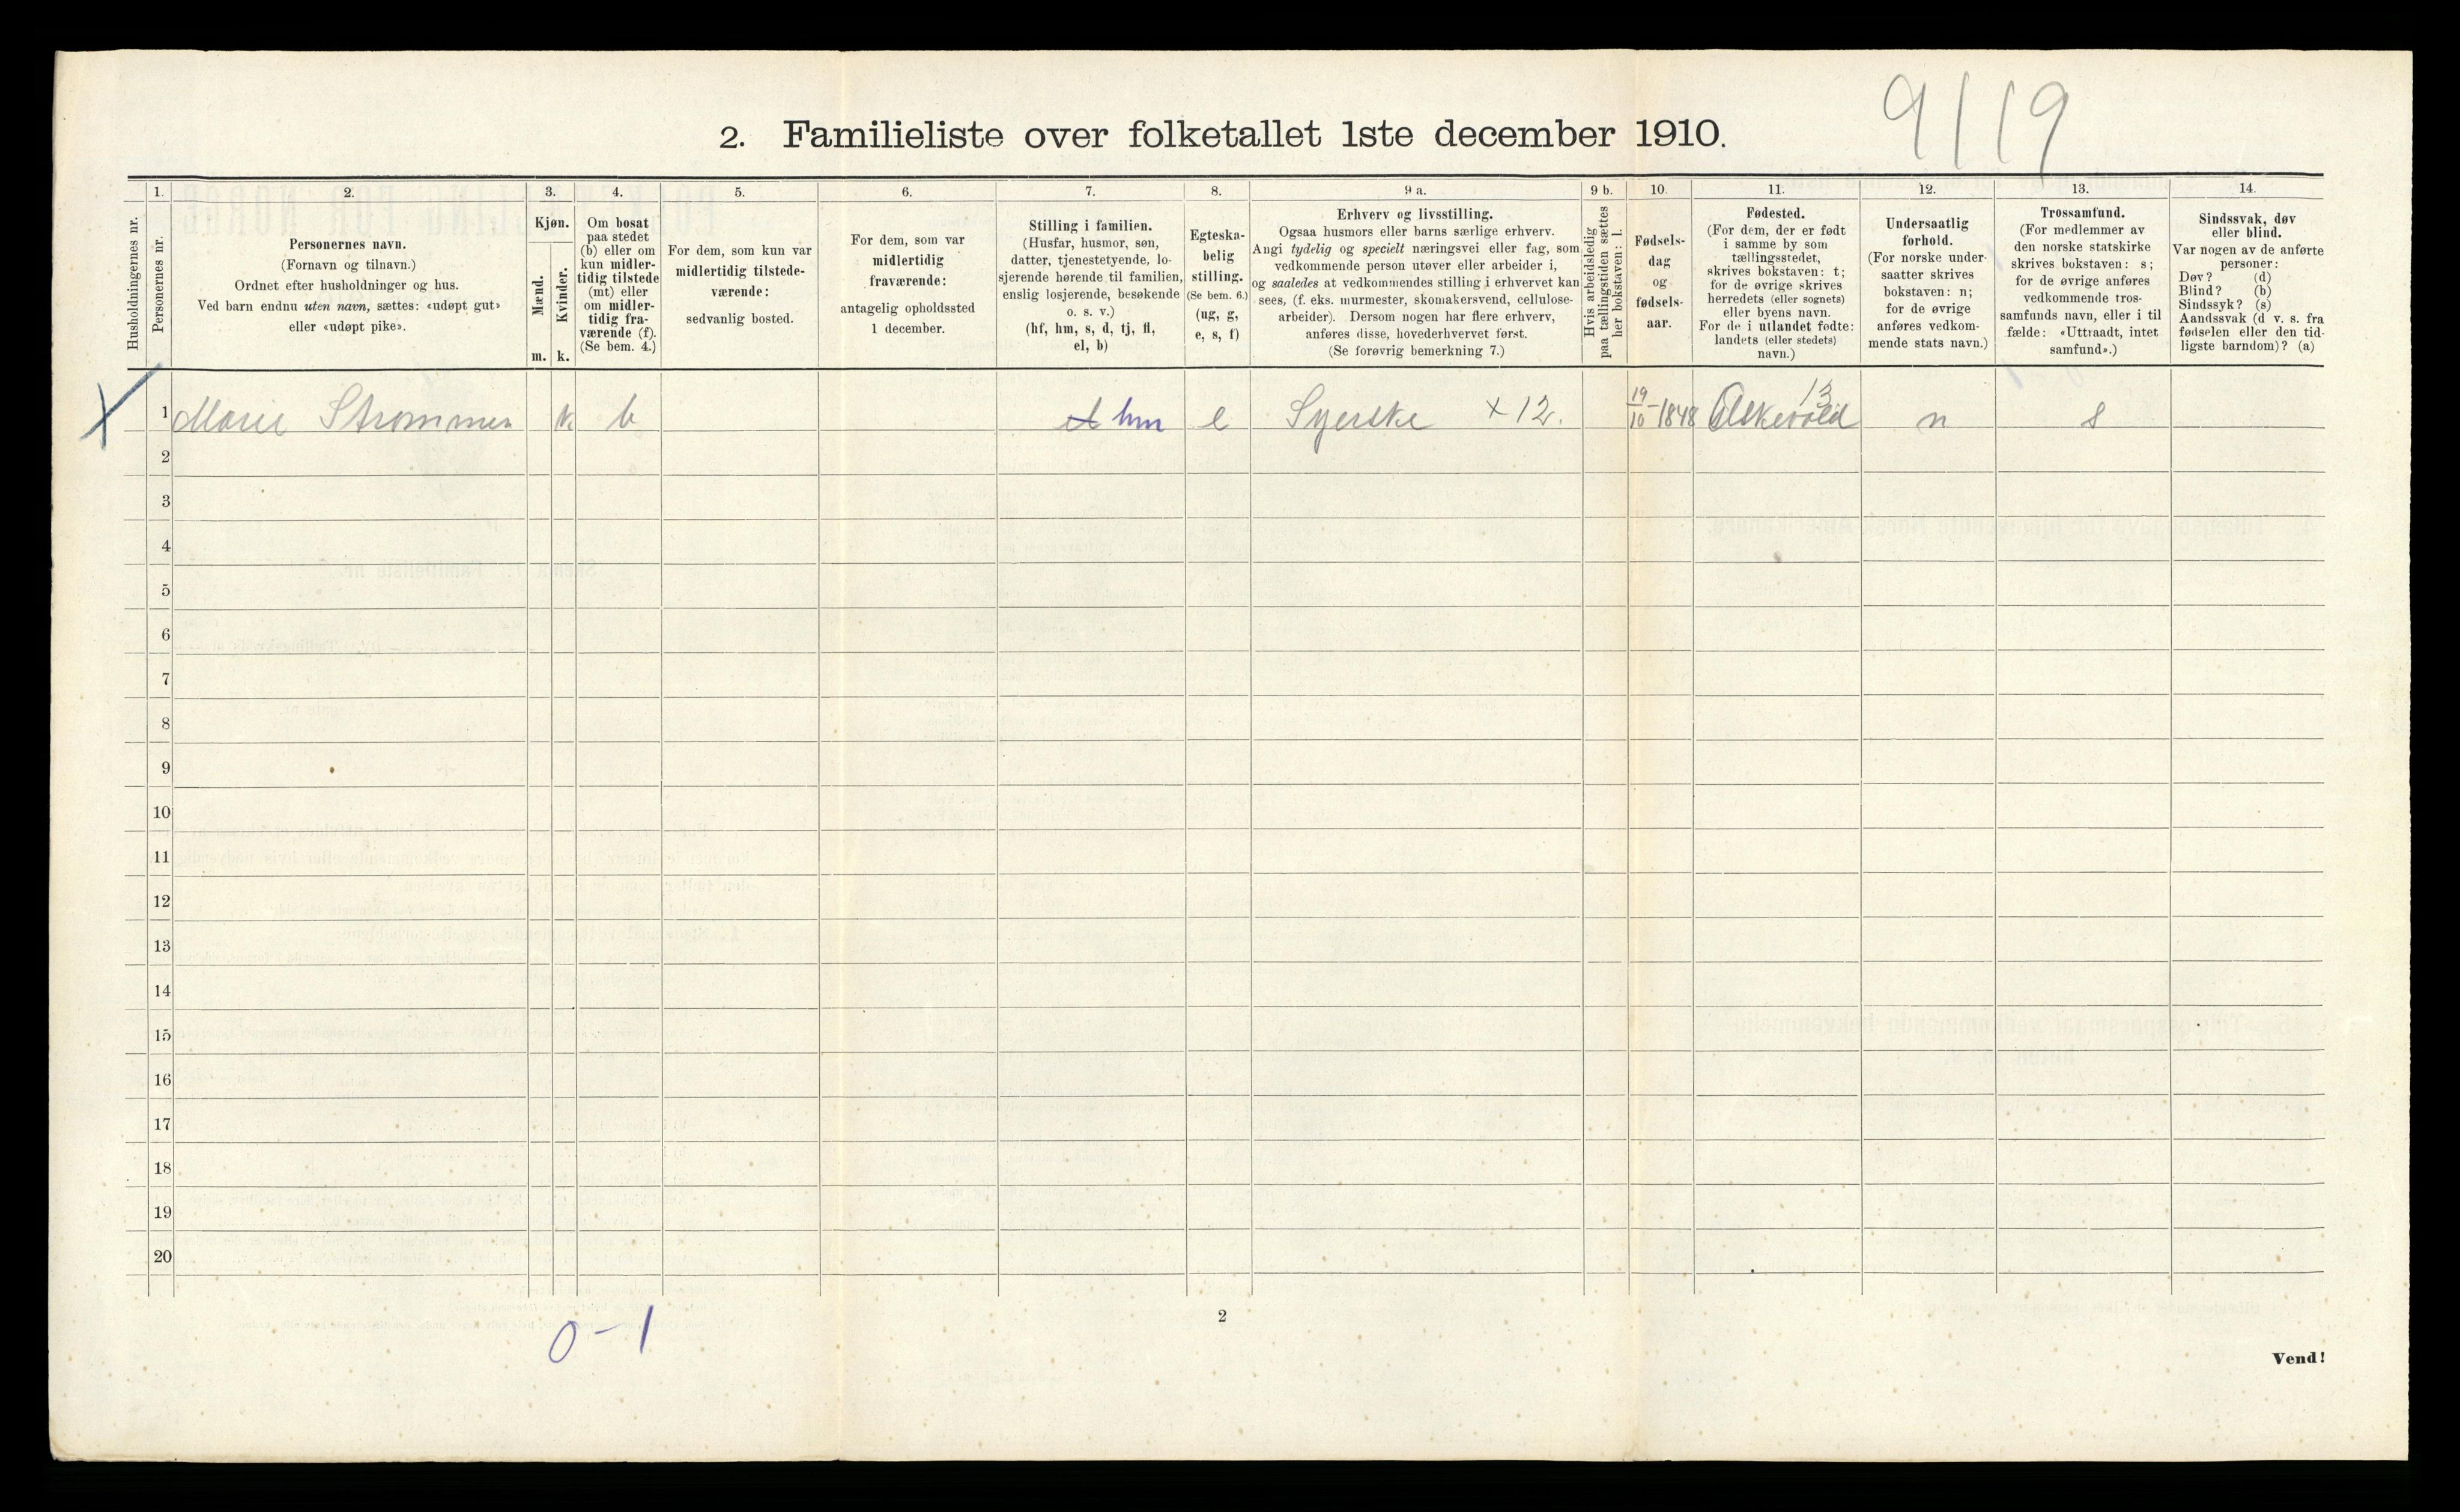 9119
2. Familieliste over folketallet 1ste december 1910.
1. 2. 3. 4. 5. 6. 7. 8. 9 a. 9 b. 10. 11. 12. 13. 14.
Husholdningernes nr.
Personernes nr.
Personernes navn.
(Fornavn og tilnavn.)
Ordnet efter husholdninger og hus.
Ved barn endnu uten navn, sættes: «udøpt gut»
eller «udøpt pike».
Kjøn.
Mænd.
Kvinder.
m. k.
Om bosat
paa stedet
(b) eller om
kun midler-
tidig tilstede
(mt) eller
om midler-
tidig fra-
værende (f).
(Se bem. 4.)
For dem, som kun var
midlertidig tilstede-
værende:
sedvanlig bosted.
For dem, som var
midlertidig
fraværende:
antagelig opholdssted
1 december.
Stilling i familien.
(Husfar, husmor, søn,
datter, tjenestetyende, lo-
sjerende hørende til familien,
enslig losjerende, besøkende
o. s. v.)
(hf, hm, s, d, tj, fl,
el, b)
Egteska-
belig
stilling.
(Se bem. 6.)
(ug, g,
e, s, f)
Erhverv og livsstilling.
Ogsaa husmors eller barns særlige erhverv.
Angi tydelig og specielt næringsvei eller fag, som
vedkommende person utøver eller arbeider i,
og saaledes at vedkommendes stilling i erhvervet kan
sees, (f. eks. murmester, skomakersvend, cellulose-
arbeider). Dersom nogen har flere erhverv,
anføres disse, hovederhvervet først.
(Se forøvrig bemerkning 7.)
Hvis arbeidsledig
paa tællingstiden sættes
her bokstaven: l.
Fødsels-
dag
og
fødsels-
aar.
Fødested.
(For dem, der er født
i samme by som
tællingsstedet,
skrives bokstaven: t;
for de øvrige skrives
herredets (eller sognets)
eller byens navn.
For de i utlandet fødte:
landets (eller stedets)
navn.)
Undersaatlig
forhold.
(For norske under-
saatter skrives
bokstaven: n;
for de øvrige
anføres vedkom-
mende stats navn.)
Trossamfund.
(For medlemmer av
den norske statskirke
skrives bokstaven: s;
for de øvrige anføres
vedkommende tros-
samfunds navn, eller i til
fælde: «Uttraadt, intet
samfund».)
Sindssvak, døv
eller blind.
Var nogen av de anførte
personer:
Døv? (d)
Blind? (b)
Sindssyk? (s)
Aandssvak (d v. s. fra
fødselen eller den tid-
ligste barndom)? (a)
X 1 Marie Strømmen k b hm e Syerske x 12. 19/10-1848 Askevold 13 n s
2
3
4
5
6
7
8
9
10
11
12
13
14
15
16
17
18
19
20
0-1
2
Vend!